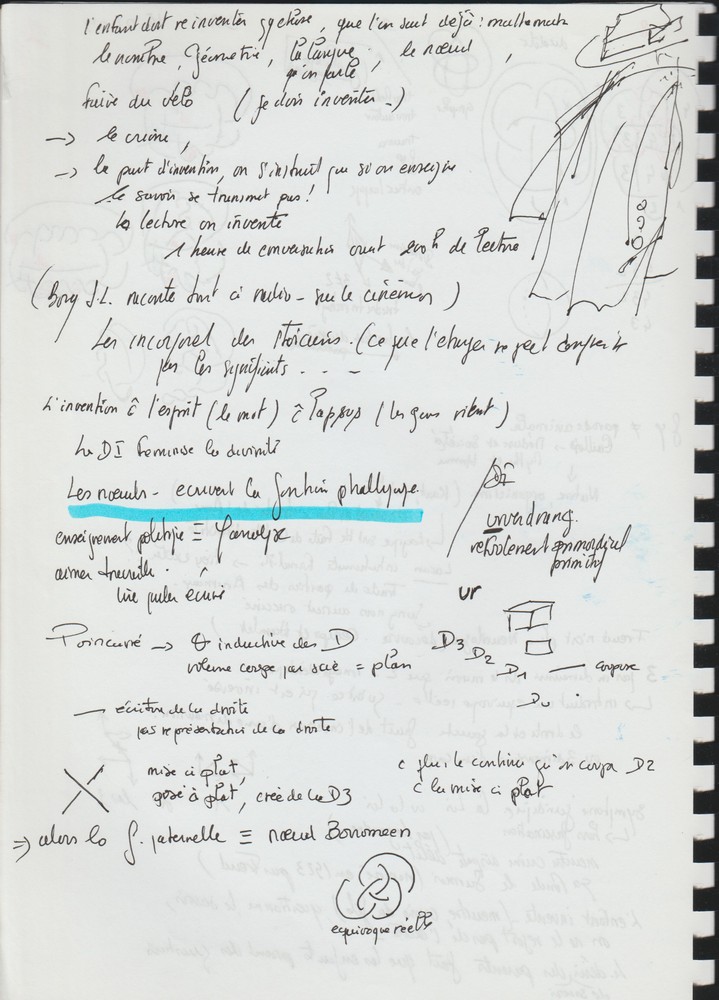 l'enfant doit réinventer système, que l'on sait déjà : mathemat
le nombre, Géométrie, la langue qu'on parle, le nœud,
faire du vélo (je dois inventer -)
→ le crime,
→ la part d'invention, on s'instruit que si on enseigne
le savoir se transmet pas !
la lecture on invente
1 heure de conversation vaut 200h de lecture
(Bory J.L. raconte tout ça radio - sur le cinéma)
Les incorporel des Stoïciens. (ce que l'étranger ne peut comprendre
par les signifiants . . .
L'invention c l'esprit (le mot) c lapsus (les gens rient)
La DI féminise la divinité
Les nœuds - ecrivent la fonction phallique
enseignement politique ≡ l'analyse
aimer travaille.
lire parler ecrire
urverdrang.
refoulement primordial
primitif
ur
Poincaré → inductive des D
volume coupé par scie = plan
D3 D2
D1 — coupure
D0 .
— écriture de la droite
pas représentation de la droite
mise à plat,
posé à plat, crée de la D3
c plus le continu qu'on coupe D2
C la mise à plat
⇒ alors la f. paternelle ≡ nœud Borromeen
equivoque réelle